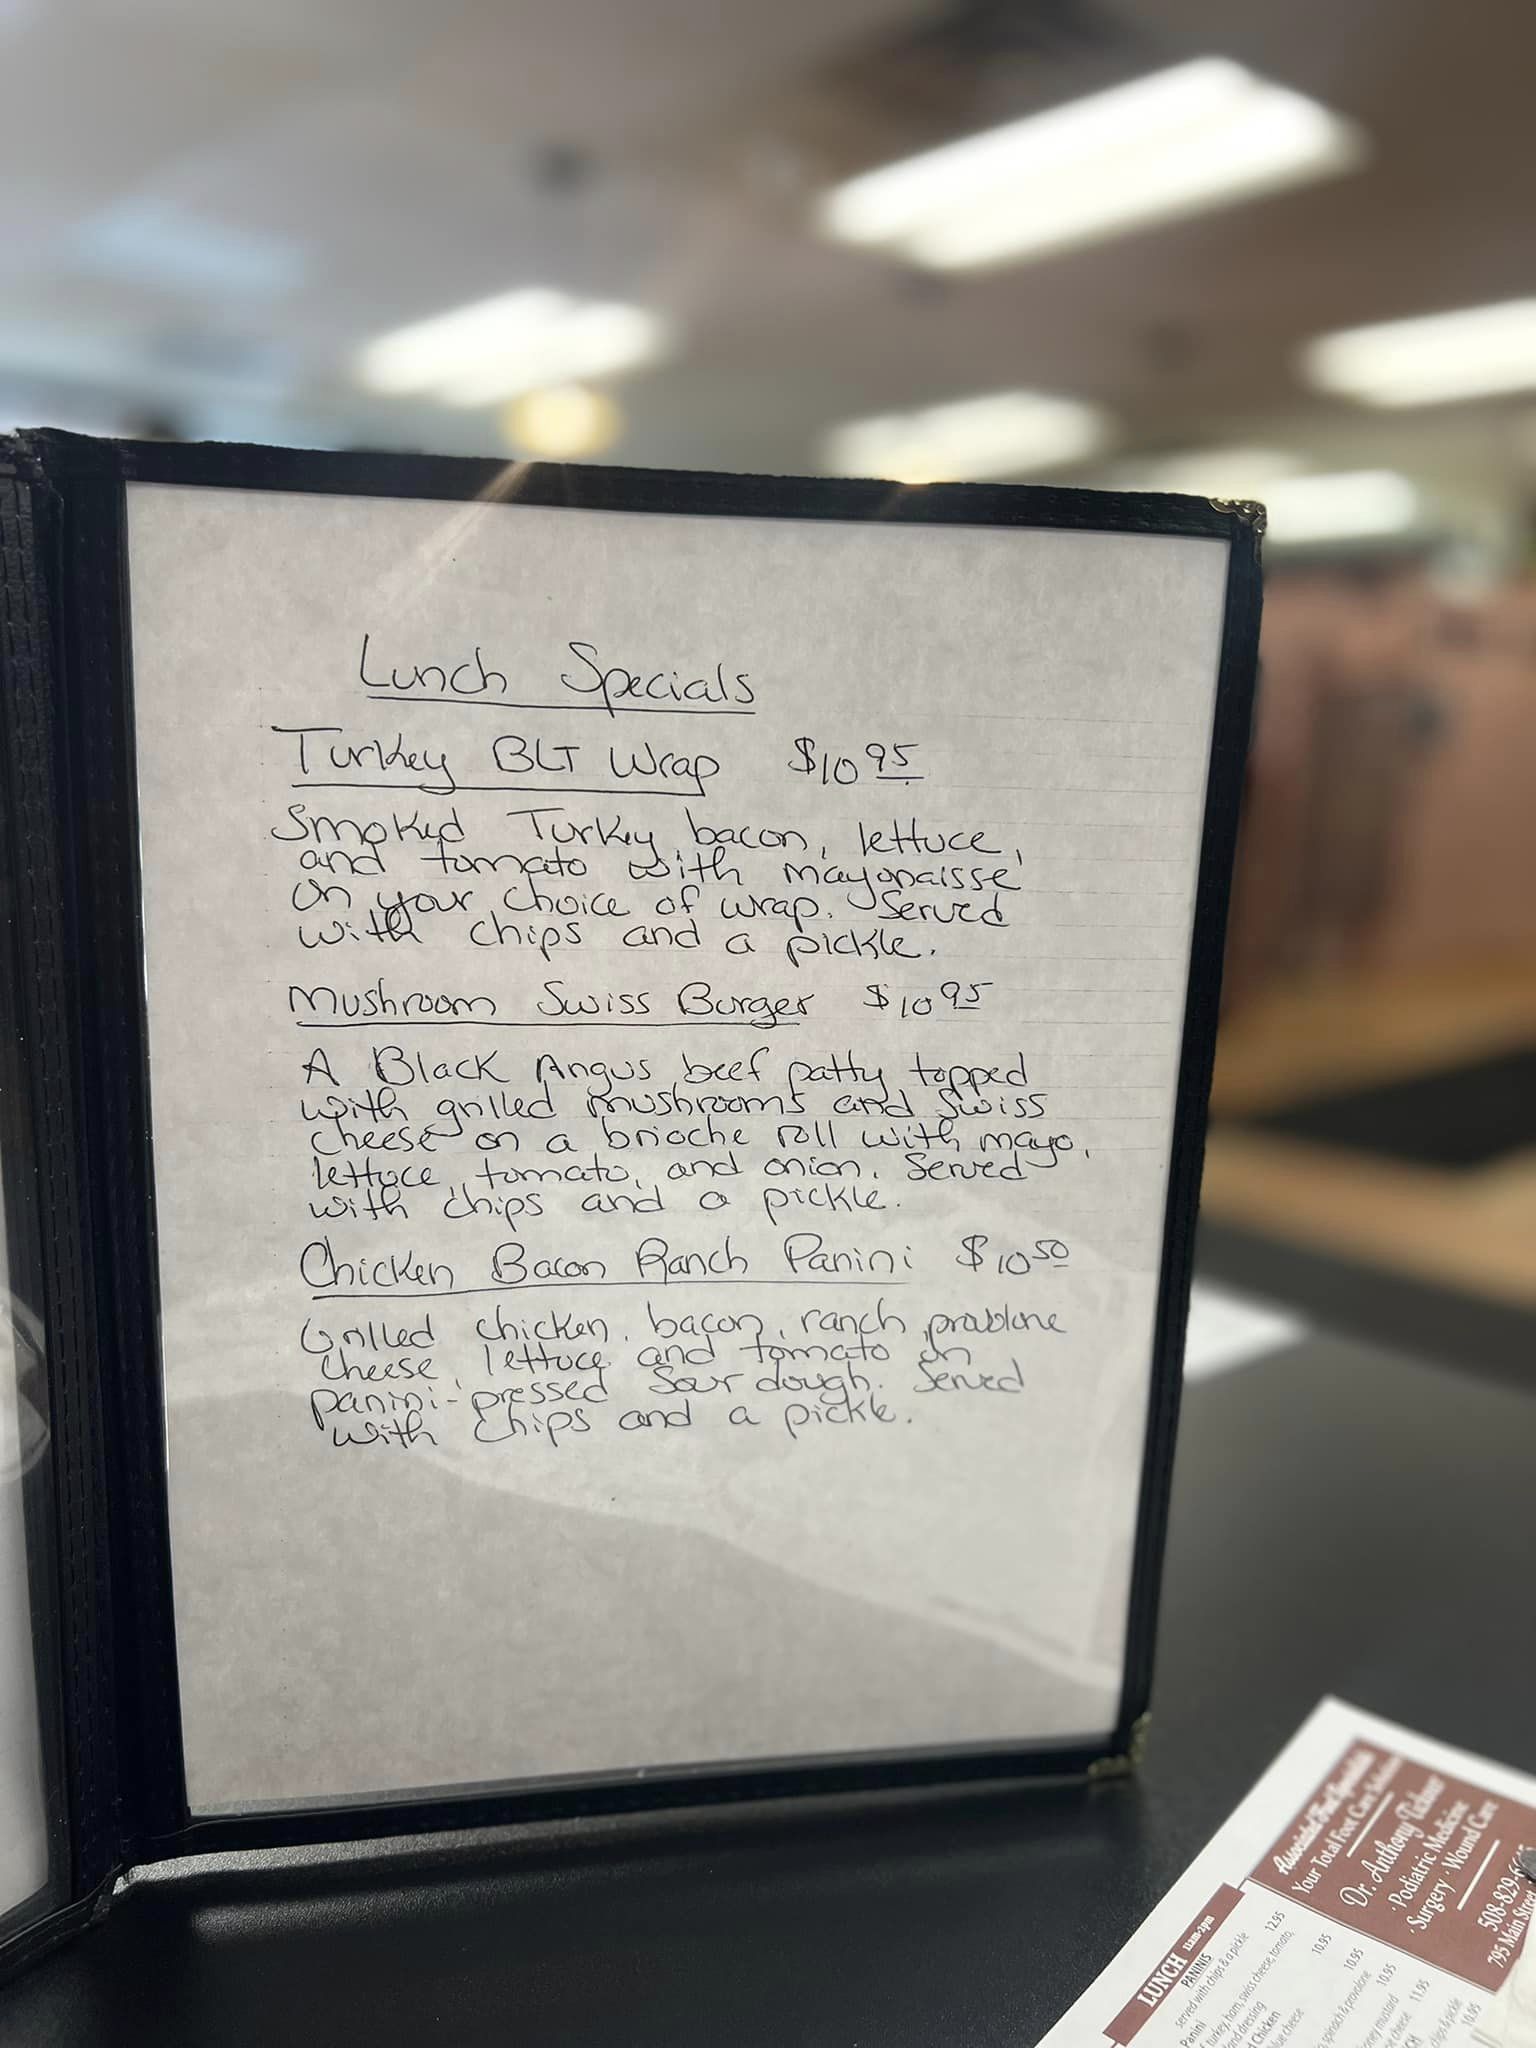 Lunch Specials
Turkey BLT Wrap $10.95
Smoked Turkey, bacon, lettuce,
and tomato with mayonaisse
on your choice of wrap. Served
with chips and a pickle.
Mushroom Swiss Burger $10.95
A Black Angus beef patty topped
with grilled mushrooms and Swiss
cheese on a brioche roll with mayo,
lettuce, tomato, and onion. Served
with chips and a pickle.
Chicken Bacon Ranch Panini $10.50
Grilled chicken, bacon, ranch, provolone
cheese, lettuce and tomato on
panini-pressed Sour dough. Served
with chips and a pickle.
Associated Foot Specialists
Your Total Foot Care Solution
Dr. Anthony Tickner
· Podiatric Medicine
· Surgery · Wound Care
508-829-
795 Main Street
LUNCH 11am-2pm
PANINIS
served with chips & a pickle
Panini 12.95
turkey, ham, swiss cheese, tomato,
and dressing
Chicken 10.95
blue cheese
spinach & provolone 10.95
honey mustard 10.95
cheese 11.95
chips & pickle
10.95